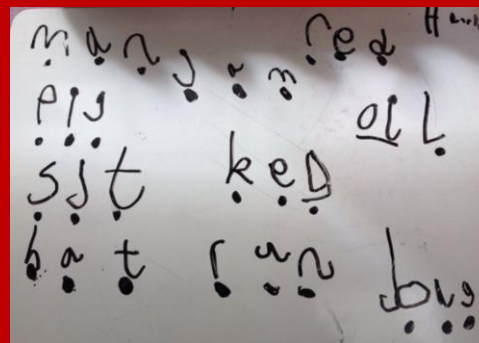 man jam red
pig oll
sit ked
hat run
bug